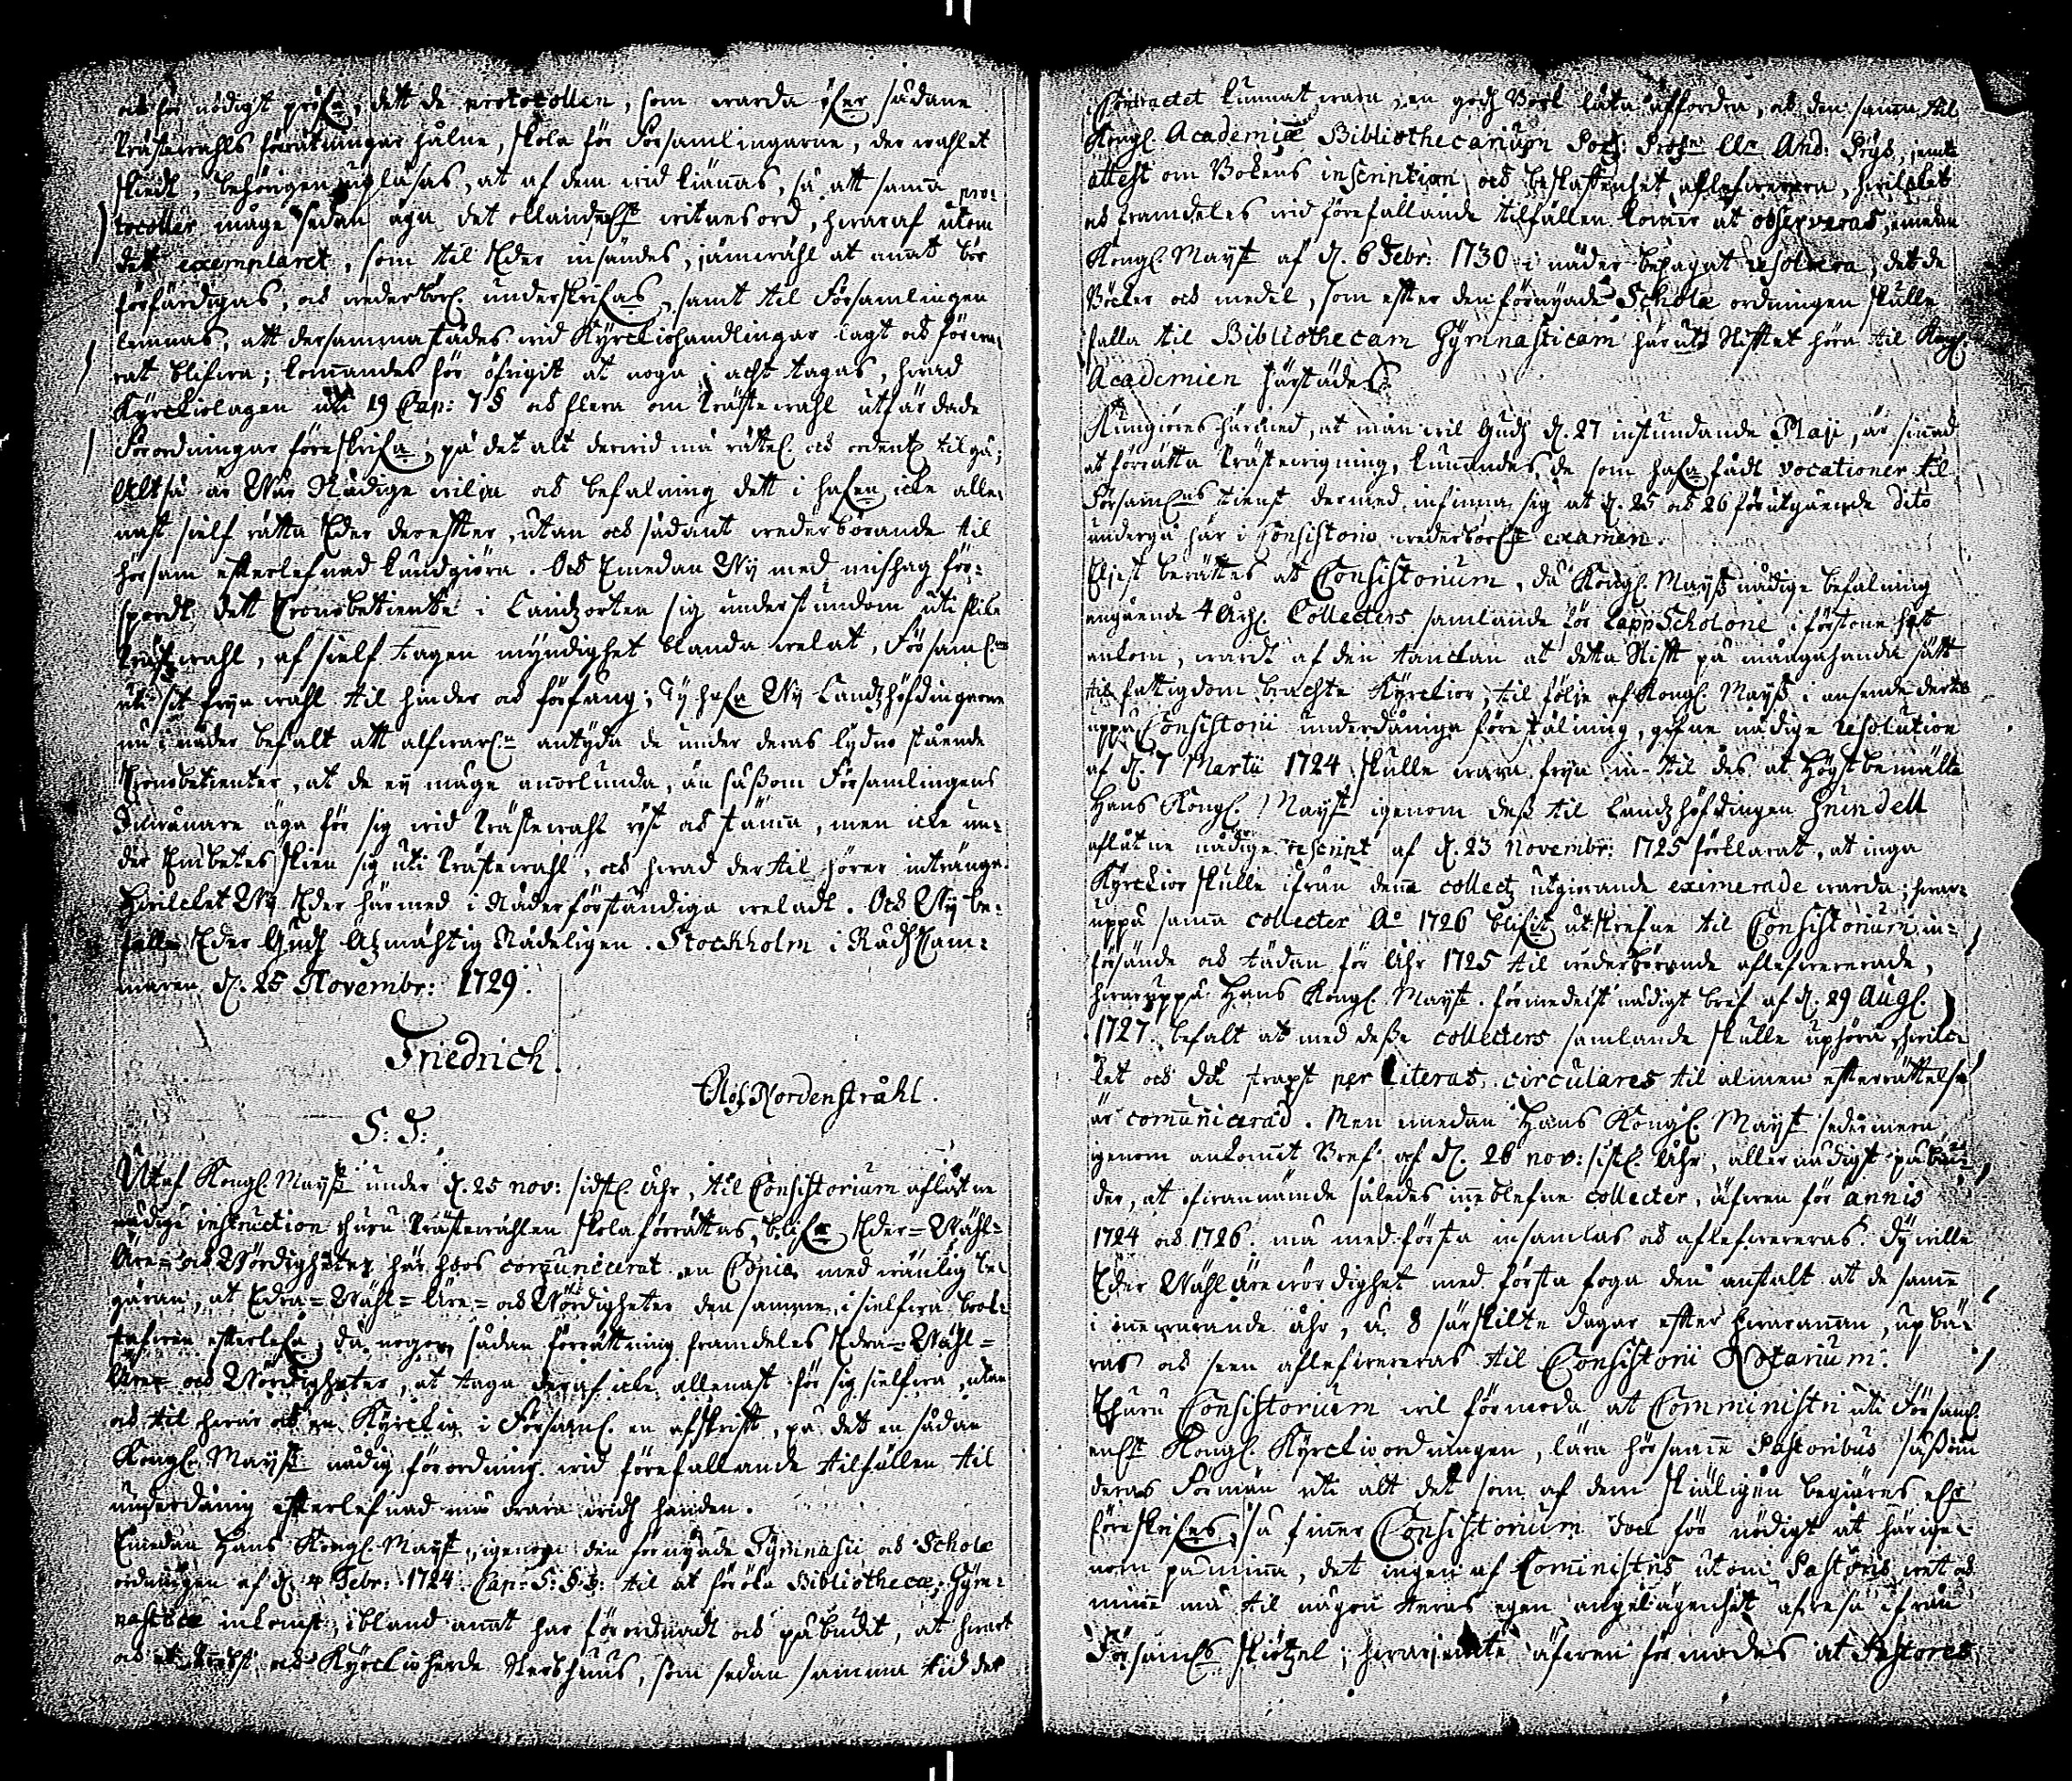 och för nödigt pröfa, dett de protocollen, som warda öfer sådane
Prästewahls förrätningar hålne, skola för Församlingarne, der wahlet
skiedt, behörigen upläsas, at af dem widkiännas, så att samma pro-
tocoller måge sedan äga det witnesord, hwaraf utom
det exemplaret, som til Eder insändes, jämwähl at annat bör
förfärdigas, och wederbörl. underskrifas, samt til Församlingen
lemnas, att dersammastädes wid Kyrckiohandlingar lagt och förwa-
rat blifwa; kommandes för öfrigit at noga i acht tagas, hwad
Kyrckiolagen uti 19 Cap: 7 § och flera om Prästewahl utfärdade
Förordningar föreskrifa, på det alt derwid må rättel. och ordentl. tilgå;
Altså är Wår Nådige wilja och befalning dett i hafen icke alle-
nast sielf rätta Eder derefter, utan och sådant wederbörande til
hörsam efterlefnad kundgiöra. Och Emedan Wij med mishag för-
spordt, dett Cronobetiente i Landsorten sig understundom uti slike
Prästwahl, af sielf tagen myndighet blanda welat, Församl:ne
uti sit fryа wahl til hinder och förfång; Ty hafa Wij Landshöfdingarne
nu i nåder befalt att alfwarl:n antyda de under deras lydno stående
Cronobetienter, at de ey måge annorlunda, än såssom Församlingens
Inwånare äga för sig wid Prästewahl röst och stämma, men icke un-
der Embetes skien sig uti Prästewahl, och hwad der til hörer intränga.
Hwilcket Wij Eder härmed i Nåder förständiga weladt. Och Wij be-
falle Eder Gudh Alzmächtig Nådeligen. Stockholm i RådhCam-
maren d. 25 Novembr: 1729.
Friedrich.
Olof Nordenstråhl.
S: T:
Utaf Kongl. Mayst under d. 25 nov: sidstl. Åhr, til Consistorium aflåtne
nådige instruction huru Prästewahlen skola förrättas, blifer Eder-Wähl-
Äre- och Wördigheter här hoos communicerat en Copia, med wänlig be-
gäran, at Edra-Wähl-Äre- och Wördigheter den samme, i sielfwa bok-
stafwen efterlefa, då någon sådan förrättning framdeles Edra-Wähl-
Äre- och Wördigheter, at taga deraf icke allenast för sig sielfwa, utan
och til hwar och en Kyrckia i Församl. en afskrift, på det en sådan
Kongl. Mayst nådig förordning wid förefallande tilfällen til
underdånig efterlefnad må wara widh handen.
Emedan Hans Kongl. Mayst, igenom den förnyade Gymnasii och Schole
ordningen af d. 4 Febr: 1724 Cap: 5: § 5: til at föröka Bibliothecæ Gym-
nasticæ inkomst, ibland annat har förordnadt och påbudit, at hwart
och ett och Kyrckioherde Sterbhuus, som sedan samma tid der
Contractet kunnat wara, en god Book låta affordra, och den samma til
Kongl. Academiæ Bibliothecarium And: Gryd, jemte
attest om Bokens inscription och beskaffenhet aflefwerera, hwilcket
och framdeles wid förefallande tilfällen kommer at observeras, emedan
Kongl. Mayst af d. 6 Febr: 1730 i nåder behagat resolvera, det de
Böcker och medel, som efter den förnyade Scholæ ordningen skulle
falla til Bibliothecam Gymnasticam här uti Stiftet höra til Kongl.
Academien härstädes.
Kungiöres härmed, at man wil Gudh d. 27 instundande Maji, är sinnad
at förrätta Prästewigning, kunnandes de som hafa fådt vocationer til
Församl:ns tienst dermed infinna sig at d. 25 och 26 förutgående dito
undergå här i Consistorio wederbörl:e examen.
Eliest berättes at Consistorium, då Kongl. Mayst nådige befalning
angående 4 Åhrl. Collecters samlande för Lapp Scholone i förstone hit
ankom, wardt af den tanckan at detta Stift på mångahanda sätt
til fattigdom brachte Kyrckior, til följe af Kongl. Mayst i anseende dertil
uppå Consistorii underdåniga föreställning, gifne nådige resolution
af d. 7 Martii 1724 skulle wara fryа in til des at Högstbemälte
Hans Kongl. Mayst igenom dess til Landshöfdingen Grundell
aflåtne nådige rescript af d. 23 Novembr: 1725 förklarat, at inga
Kyrckior skulle ifrån denna collects utgiörande eximerade warda; hwar-
uppå samma collecter A:o 1726 blifit utskrefne til Consistorium in-
försände och sädan för Åhr 1725 til wederbörande aflefwererade,
hwaruppå Hans Kongl. Mayst. förmedelst nådigt bref af d. 29 Augl.
1727 befalt at med desse collecters samlande skulle uphöra, hwilc-
ket och dock strapt per Literas circulares til almen efterrättelse
är communicerad. Men emedan Hans Kongl. Mayst sedermera
igenom ankommit Bref af d. 26 nov: sistl. Åhr, allernådigst påbiu-
der, at ofwannämde således inneblefne collecter, äfwen för annis
1724 och 1726. må med första insamlas och aflefwereras. Dy wille
Eder Wähl äre wördighet med första foga den anstalt at de samme
i innewarande åhr, å 8 särskilte dagar efter hwarannan, upbä-
ras och seen aflefwereras til Consistorii Notarium.
Ehuru Consistorium wil förmoda at Comministri uti Församl.
enl:t Kongl. Kyrckioordningen, lära hörsamme Pastoribus såssom
deras Förmän uti alt det som af dem skiäligen begiäres eller
föreskrifes, så finner Consistorium doch för nödigt at härige-
nom påminna, det ingen af Comministris utom Pastoris wet och
minne må til någon deras egen angelägenhet afresa ifrån
Församl:s skiötzel; hwarjemte äfwen förmodes at Pastores